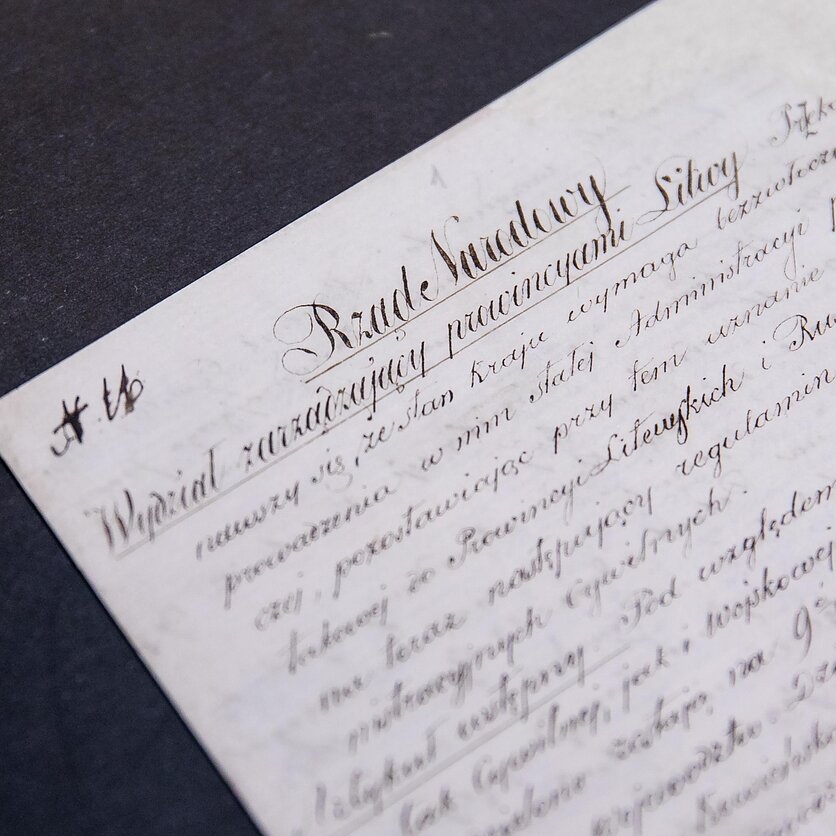 Rząd Narodowy
Wydział zarządzający prowincyami Litwy
nawszy się, że stan kraju wymaga bezzwłoczn
prowadzenia w nim stałej Administracyi
czej, pozostawiając przy tem uznanie
takowej ze Prowincyi Litewskich i Ru
ma teraz następujący regulamin
nistracyjnych Cywilnych.
Artykuł wstępny. Pod względem
tak Cywilnej, jak i Wojskowej
zostają na 9
województwo